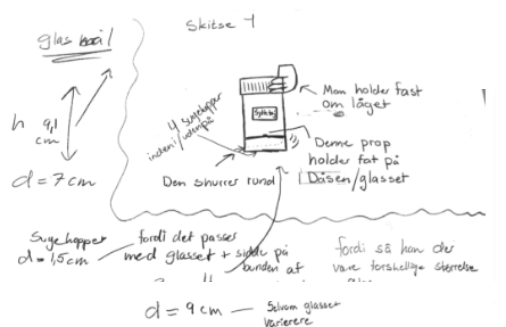 Skitse 1
glas mål
h 9,1 cm
d = 7 cm
4 sugekopper
indeni / udenpå
Man holder fast
om låget
Denne prop
holder fat på
Dåsen/glasset
Den snurrer rund
Sugekopper
d = 1,5 cm
fordi det passer
med glasset + sidde på
bunden af
fordi så kan der
være forskellige størrelse
d = 9 cm — Selvom glasset
varierere